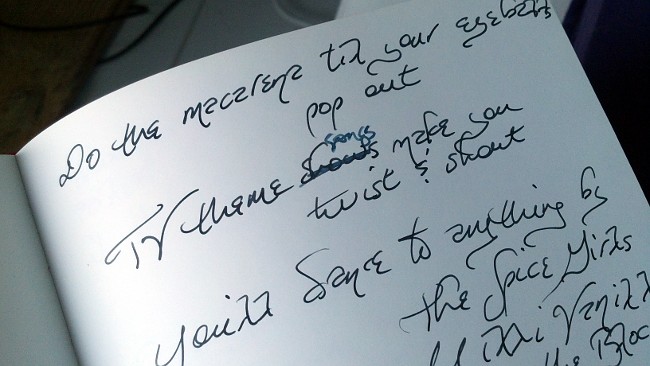 Do the macarena till your eyeballs
pop out
TV theme shouts songs make you
twist & shout
You'll dance to anything by
the Spice Girls
Milli Vanilli
the Bloc